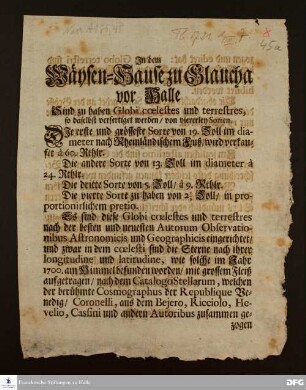 In dem
Wäysen-Hause zu Glaucha
vor Halle
Sind zu haben Globi cœlestes und terrestres,
so daselbst verfertiget werden / von viererley Sorten.
Die erste und grösseste Sorte von 19. Zoll im dia-
meter nach Rheinländischem Fuß / wird verkauf-
fet à 60. Rthlr.
Die andere Sorte von 12 Zoll im diameter à
24. Rthlr.
Die dritte Sorte von 5. Zoll / à 9. Rthlr.
Die vierte Sorte zu haben von Zoll / in pro-
portionirlichem pretio.
Es sind diese Globi cœlestes und terrestres
nach der besten und neuesten Autorum Observatio-
nibus Astronomicis und Geographicis eingerichtet;
und zwar in dem cœlesti sind die Sterne nach ihrer
longitudine und latitudine, wie solche im Jahr
1700. am Himmel befunden worden / mit grossem Fleiß
aufgetragen / nach dem Catalogo Stellarum, welchen
der berühmte Cosmographus der Republique Ve-
nedig / Coronelli, aus dem Bejero, Ricciolo, He-
velio, Cassini und andern Autoribus zusammen ge-
zogen
45a
Franckesche Stiftungen zu Halle